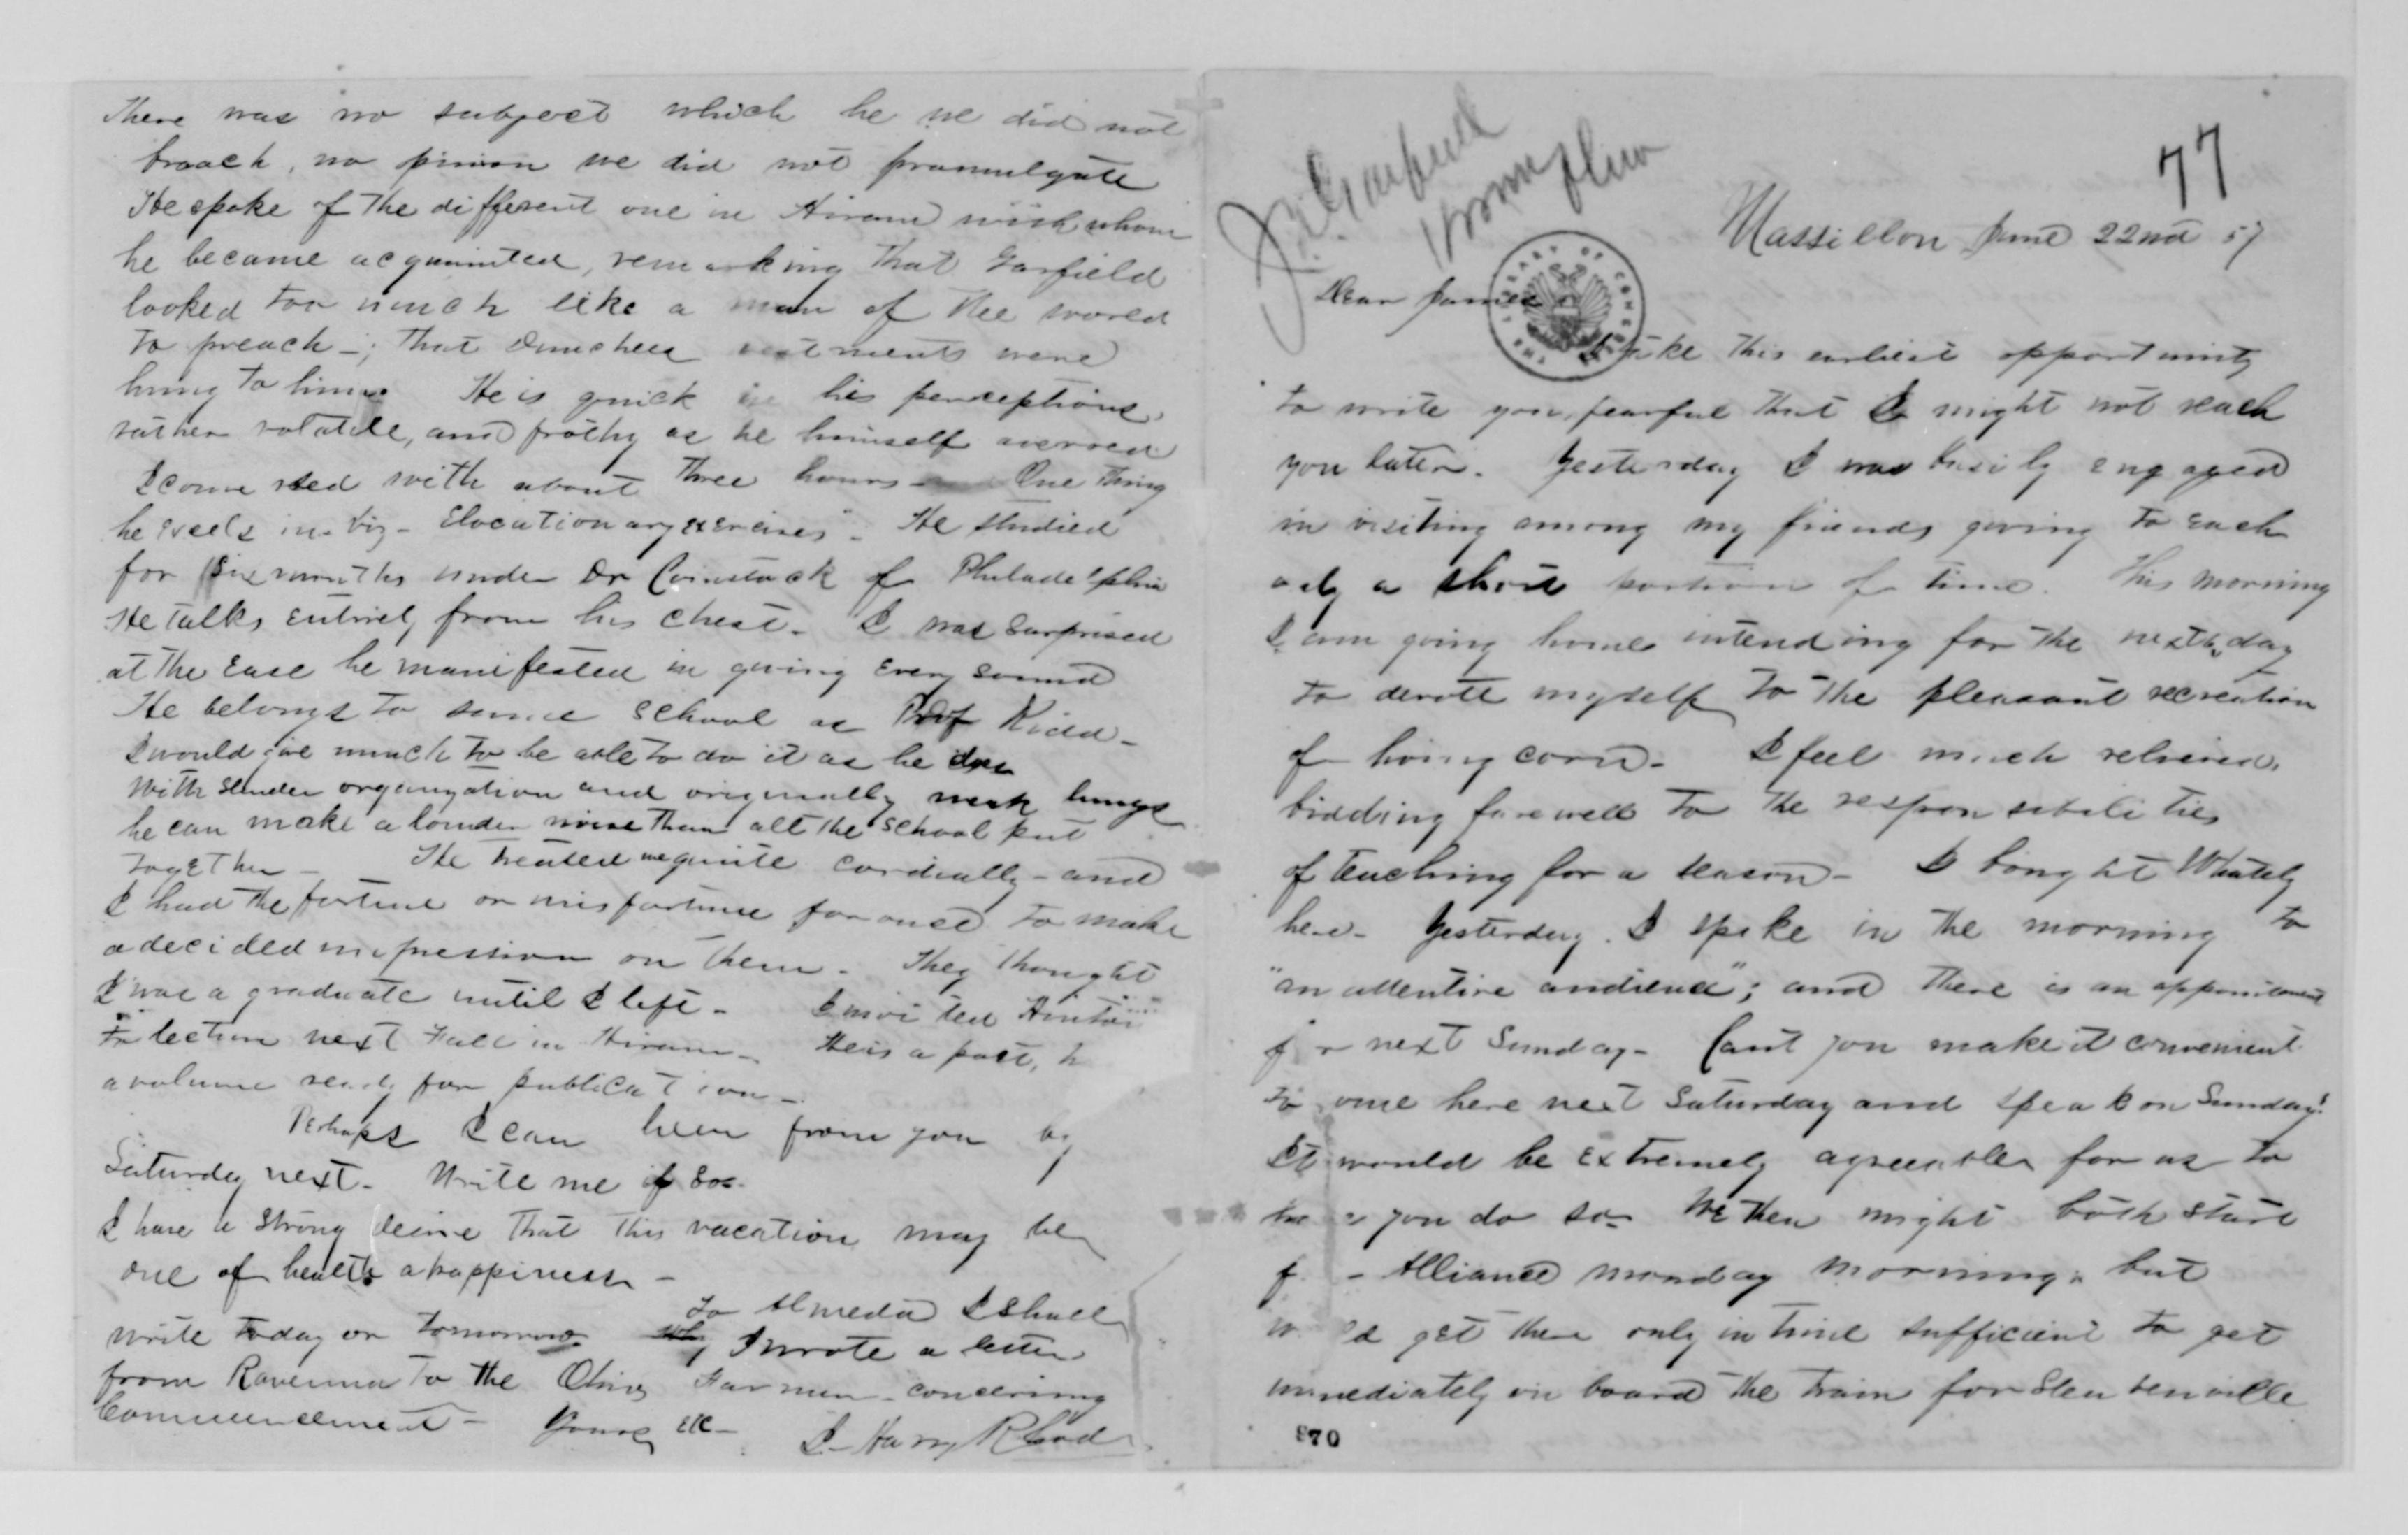 There was no subject which he we did not
broach, no pinion we did not promulgate
He spoke of the different one in Hiram with whom
he became acquainted, remarking that Garfield
looked too much like a man of the world
to preach -; that Dunshees vestments were
hung to him. He is quick in his perceptions,
rather volatile, and frothy as he himself averred
I conversed with about three hours - One thing
he excels in - viz - Elocutionary exercises". He studied
for six months under Dr Comstock of Philadelphia
He talks entirely from his chest. I was surprised
at the ease he manifested in giving every sound
He belongs to same school as Prof Kidd -
I would give much to be able to do it as he does
With slender organization and originally weak lungs
he can make a louder noise than all the school put
together - He treated me quite cordially - and
I had the fortune or misfortune for once to make
a decided impression on them. They thought
I was a graduate until I left - I invited
to lecture next Fall in Hiram - He is a poet, h
a volume ready for publication -
Perhaps I can hear from you by
Saturday next. Write me if so.
I have a strong desire that this vacation may be
one of health & happiness -
To Almeda I shall
write today or tomorrow I wrote a letter
from Ravenna to the Ohio Farmer - concerning
Commencement - Yours etc - J. Harry Rhodes
77
J. A. Garfield
Massillon June 22nd 57
Dear James
THE LIBRARY OF CONGRESS
I take this earliest opportunity
to write you, fearful that I might not reach
you later. Yesterday I was busily engaged
in visiting among my friends giving to each
only a short portion of time. This morning
I am going home intending for the next day
to devote myself to the pleasant recreation
of hoing corn. I feel much relieved,
bidding farewell to the responsibilities
of teaching for a season - I bought Whately
here. Yesterday I spoke in the morning to
"an attentive audience"; and there is an appointment
for next Sunday - Cant you make it convenient
to come here next Saturday and speak on Sunday?
It would be extremely agreeable for us to
have you do so - We then might both start
for Alliance monday morning, but
would get there only in time sufficient to get
immediately on board the train for Steubenville
870